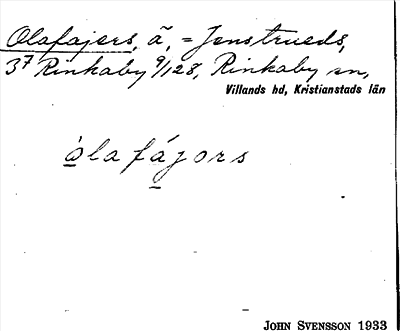 Olafajers, ä, = Jenstrueds,
3⁷ Rinkaby 9/128, Rinkaby sn,
Villands hd, Kristianstads län
òlafájors
JOHN SVENSSON 1933